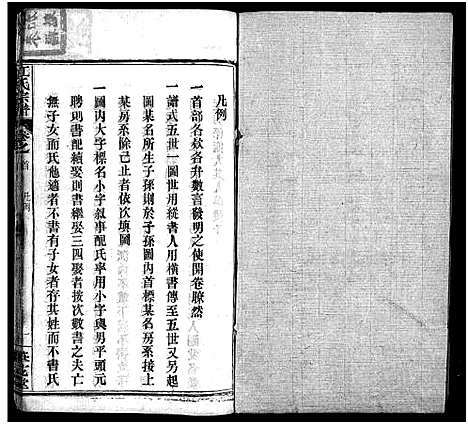 凡例
一首部名欸各弁數言發明之使開卷瞭然
一譜式五世一圖世用縱書人用橫書傳至五世又另起
圖某名所生子孫則於子孫圖內首標某名房系接上
某房系除己止者依次填圖
一圖內大字標名小字叙事配氏率用小字與男平頭元
聘則書配續娶則書繼娶三四娶者按次數書之夫亡
無子女而氏他適者不書有子女者存其姓而不書氏
江氏宗譜
凡例